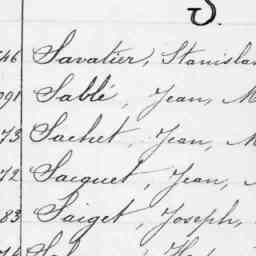 S.
46 Savatier, Stanislas
91 Sablé, Jean, M
73 Sachet, Jean, M
72 Sacquet, Jean,
83 Saiget, Joseph,